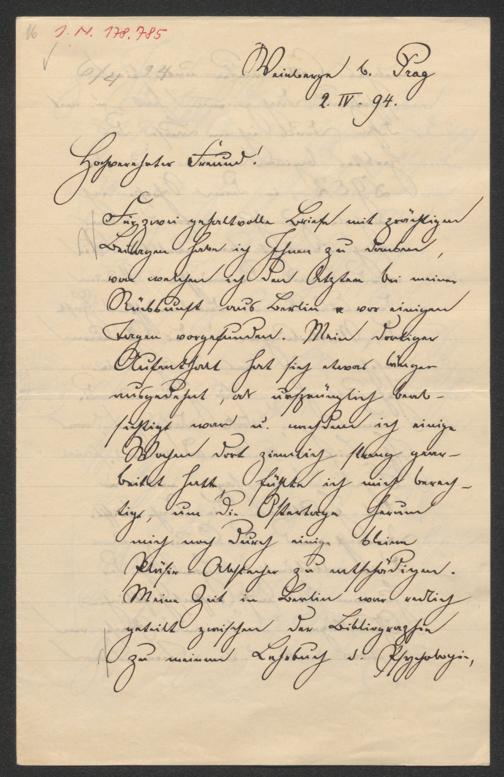 16
J. N. 178.785
Weinberge b. Prag
2. IV. 94.
Hochverehrter Freund!
Für zwei gehaltvolle Briefe mit prächtigen
Beilagen habe ich Ihnen zu danken,
von welchen ich den letzten bei meiner
Rückkunft aus Berlin vor einigen
Tagen vorgefunden. Mein dortiger
Aufenthalt hat sich etwas länger
ausgedehnt, als ursprünglich beab-
sichtigt war u. nachdem ich einige
Wochen dort ziemlich streng gear-
beitet hatte, fühlte ich mich berech-
tigt, um die Ostertage herum
mich noch durch einige kleine
Pläsir-Abstecher zu entschädigen.
Meine Zeit in Berlin war redlich
geteilt zwischen der Bibliographie
zu meinem Lehrbuch d. Psychologie,